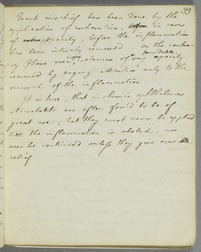 29
Much mischief has been done by the
application of exhaustion, often in cases
of opacity, before the inflammation
has been intirely removed. on the contra-
ry I have seen instances of very opacity
removed by paying attention only to the
removal of the inflammation.
It is true, that in chronic ophthalmia
stimulants are often found to be of
great use; but they must never be applied
till the inflammation is abated, nor
ever be continued unless they give
relief